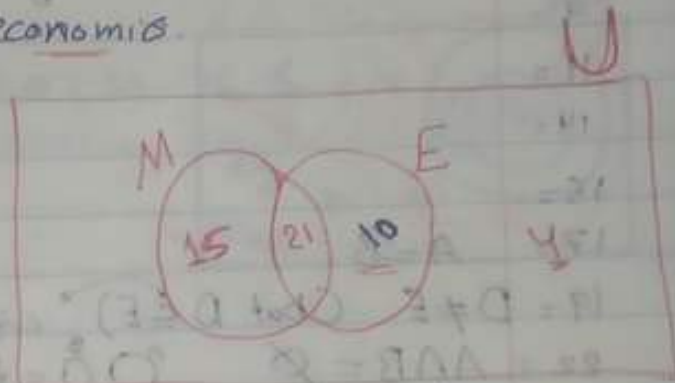 economis.
U
M E
15 21 10 4